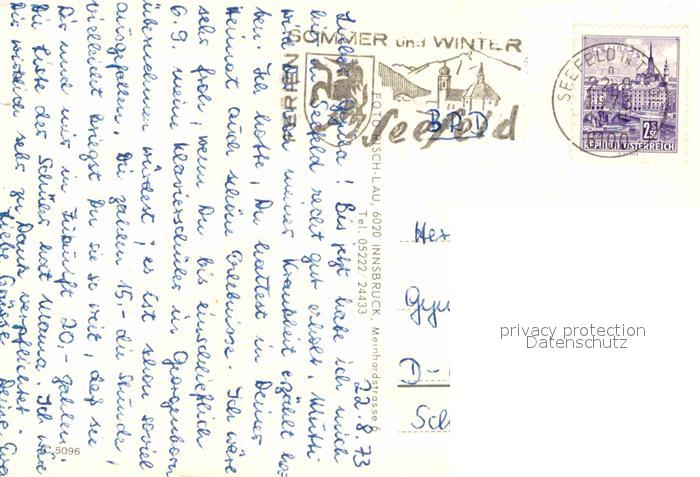 22.8.73
Lieber Gotha! Bis jetzt habe ich mich
hier in Seefeld recht gut erholt. Mutti
wird von meiner Krankheit erzählt ha-
ben. Ich hoffe, Du hattest in Deiner
Heimat auch schöne Erlebnisse. Ich wäre
sehr froh, wenn Du bis einschließlich
6.9. meine Klavierschüler in Georgenborn
übernehmen würdest; es ist schon soviel
ausgefallen. Die zahlen 15,- die Stunde,
vielleicht kriegst Du sie so weit, daß sie
Dir und mir in Zukunft 20,- zahlen.
Die Liste der Schüler hat Mama. Ich wäre
Dir wirklich sehr zu Dank verpflichtet.
Liebe Grüsse Deine
FERIEN SOMMER und WINTER
Seefeld
SEEFELD IN T
2.50
REPUBLIK ÖSTERREICH
BRD
Her
Gym
D-
Sch
6020 INNSBRUCK, Meinhardstrasse 6
Tel. 05222/24433
C 5096
privacy protection
Datenschutz